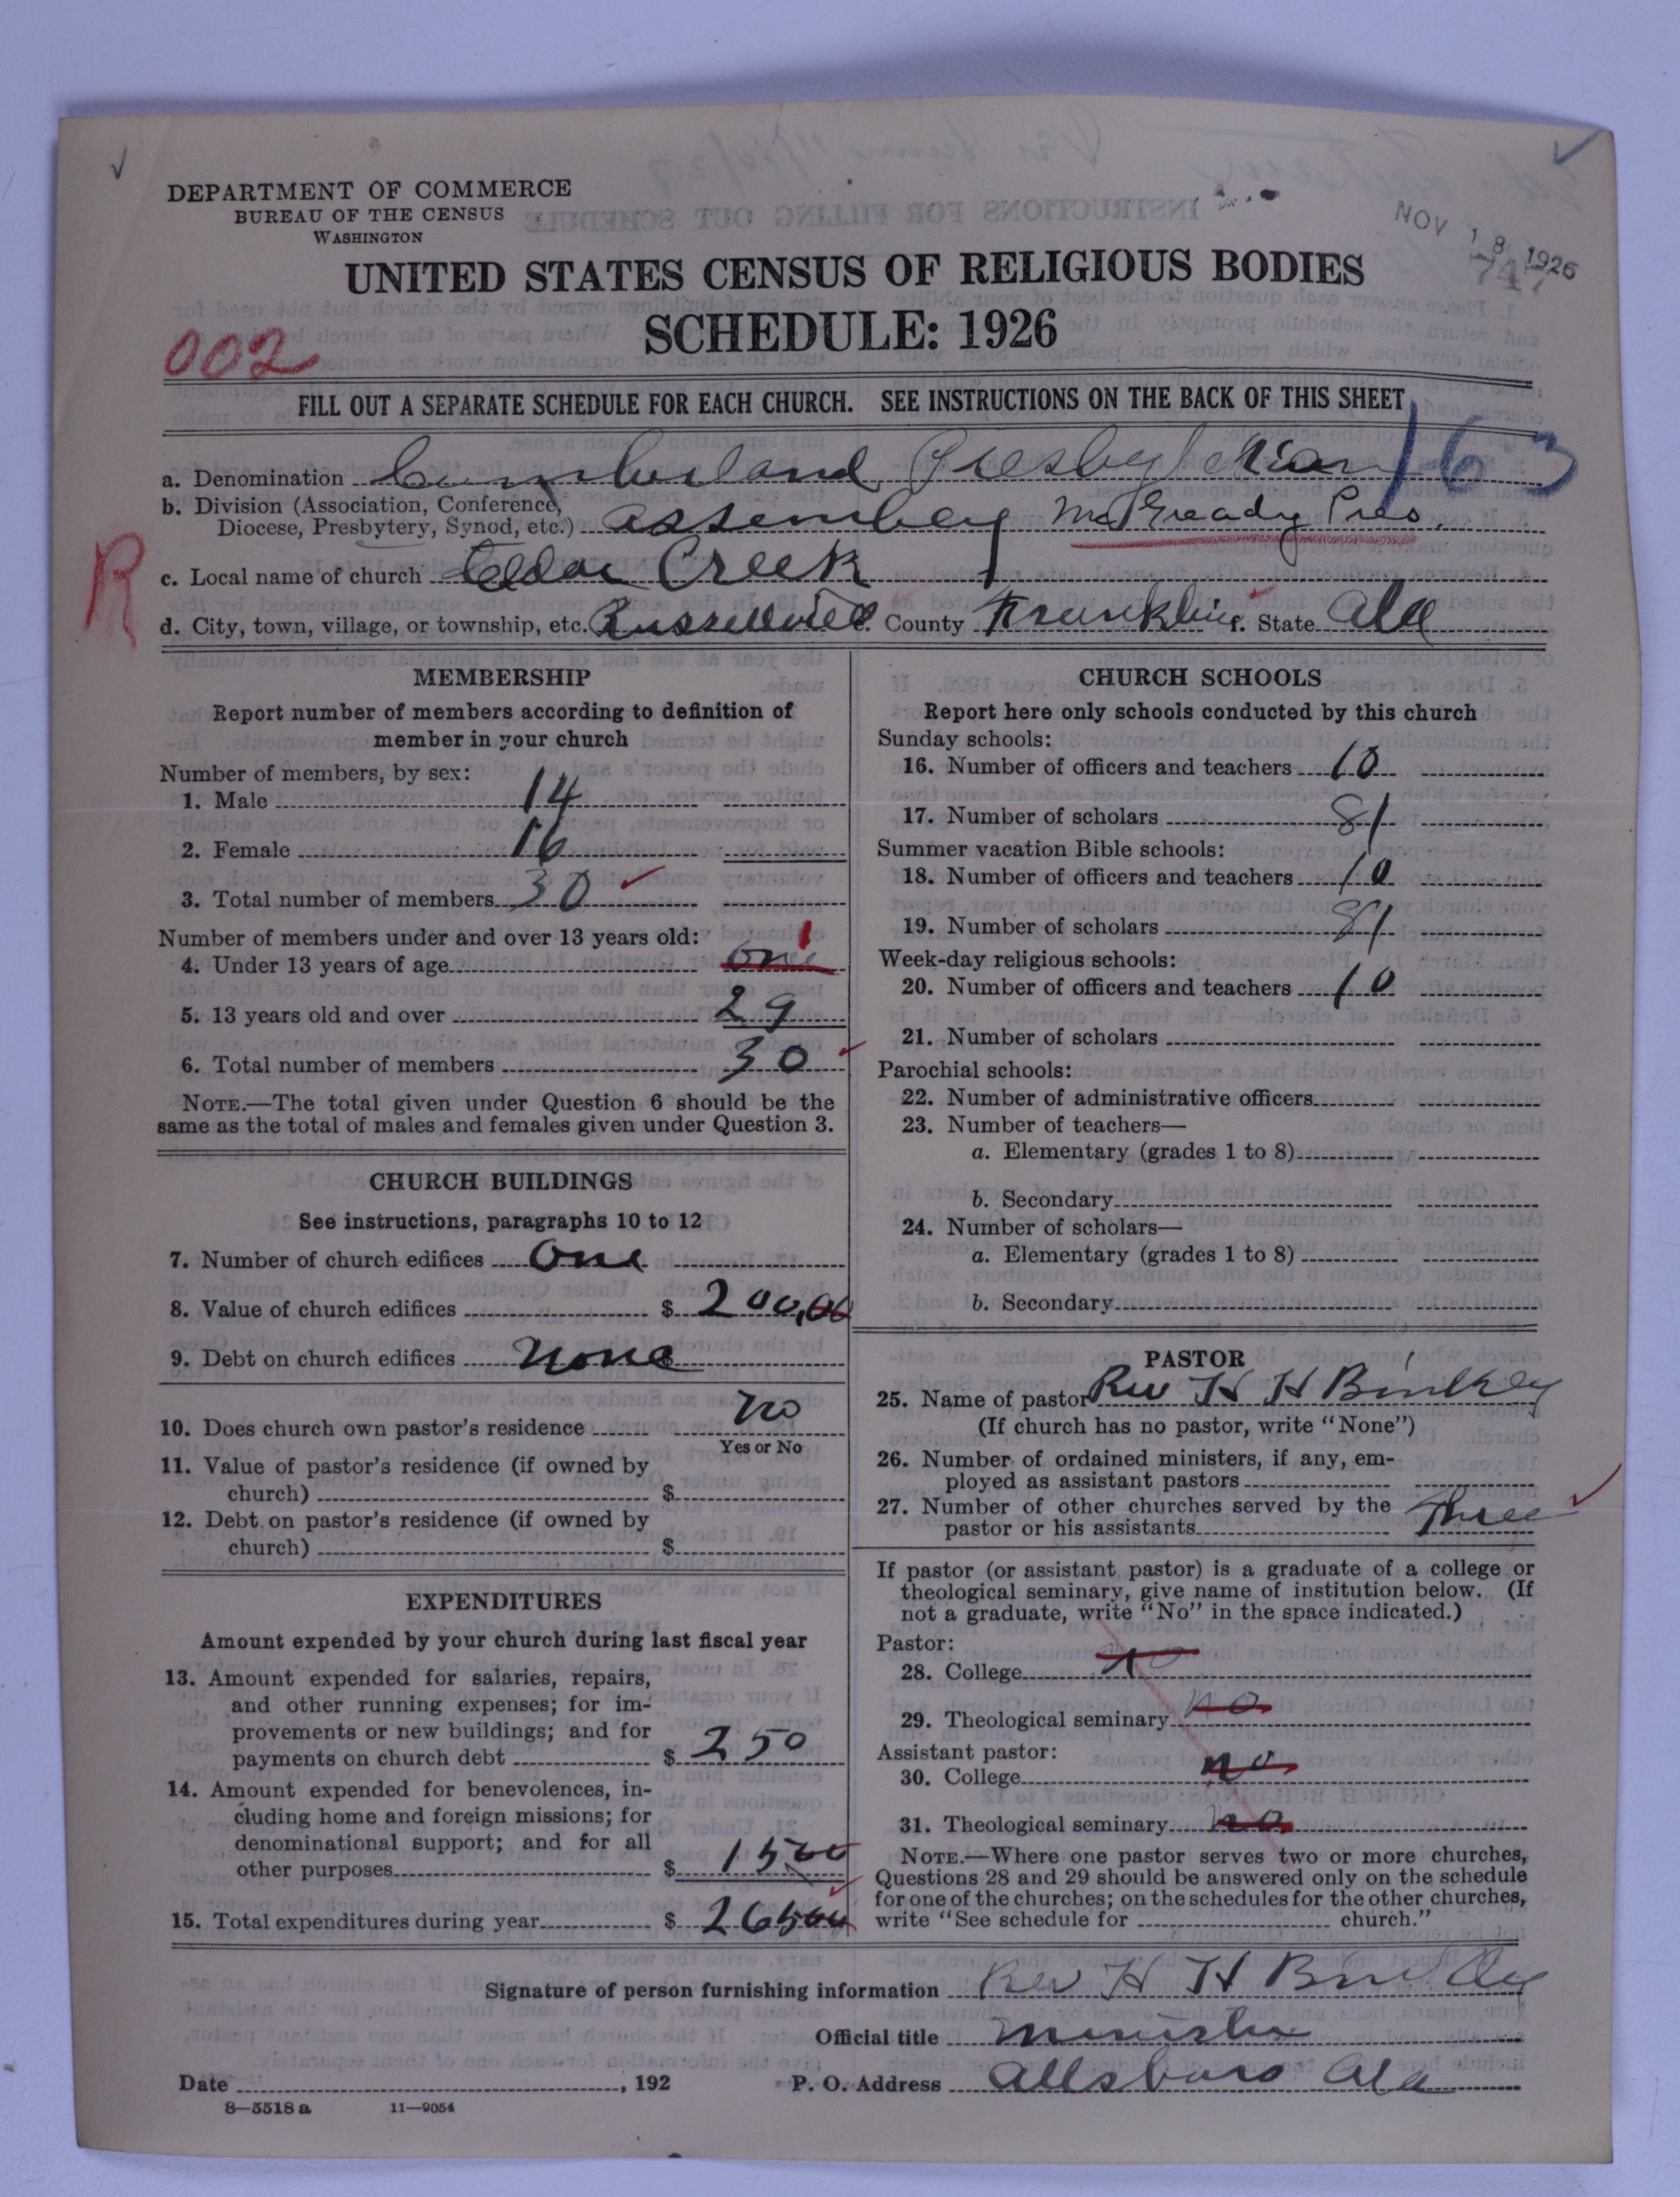 DEPARTMENT OF COMMERCE
BUREAU OF THE CENSUS
WASHINGTON
NOV 18 1926
747
UNITED STATES CENSUS OF RELIGIOUS BODIES
SCHEDULE: 1926
002
FILL OUT A SEPARATE SCHEDULE FOR EACH CHURCH. SEE INSTRUCTIONS ON THE BACK OF THIS SHEET
163
a. Denomination Cumberland Presbyterian
b. Division (Association, Conference,
Diocese, Presbytery, Synod, etc.) Assembley McGready Pres.
R
c. Local name of church Cedar Creek
d. City, town, village, or township, etc. Russellville e. County Franklin f. State Ala
MEMBERSHIP
Report number of members according to definition of
member in your church
Number of members, by sex:
1. Male 14
2. Female 16
3. Total number of members 30
Number of members under and over 13 years old:
4. Under 13 years of age one 1
5. 13 years old and over 29
6. Total number of members 30
NOTE.—The total given under Question 6 should be the
same as the total of males and females given under Question 3.
CHURCH BUILDINGS
See instructions, paragraphs 10 to 12
7. Number of church edifices One
8. Value of church edifices $ 200,00
9. Debt on church edifices none
10. Does church own pastor's residence no
Yes or No
11. Value of pastor's residence (if owned by
church) $
12. Debt on pastor's residence (if owned by
church) $
EXPENDITURES
Amount expended by your church during last fiscal year
13. Amount expended for salaries, repairs,
and other running expenses; for im-
provements or new buildings; and for
payments on church debt $ 250
14. Amount expended for benevolences, in-
cluding home and foreign missions; for
denominational support; and for all
other purposes $ 1500
15. Total expenditures during year $ 26500
CHURCH SCHOOLS
Report here only schools conducted by this church
Sunday schools:
16. Number of officers and teachers 10
17. Number of scholars 81
Summer vacation Bible schools:
18. Number of officers and teachers 10
19. Number of scholars 81
Week-day religious schools:
20. Number of officers and teachers 10
21. Number of scholars
Parochial schools:
22. Number of administrative officers
23. Number of teachers—
a. Elementary (grades 1 to 8)
b. Secondary
24. Number of scholars—
a. Elementary (grades 1 to 8)
b. Secondary
PASTOR
25. Name of pastor Rev H H Binkley
(If church has no pastor, write "None")
26. Number of ordained ministers, if any, em-
ployed as assistant pastors
27. Number of other churches served by the
pastor or his assistants Three
If pastor (or assistant pastor) is a graduate of a college or
theological seminary, give name of institution below. (If
not a graduate, write "No" in the space indicated.)
Pastor:
28. College no
29. Theological seminary no
Assistant pastor:
30. College no
31. Theological seminary no
NOTE.—Where one pastor serves two or more churches,
Questions 28 and 29 should be answered only on the schedule
for one of the churches; on the schedules for the other churches,
write "See schedule for church."
Signature of person furnishing information Rev H H Binkley
Official title minister
Date , 192 P. O. Address Allsboro Ala
8—5518 a 11—9054